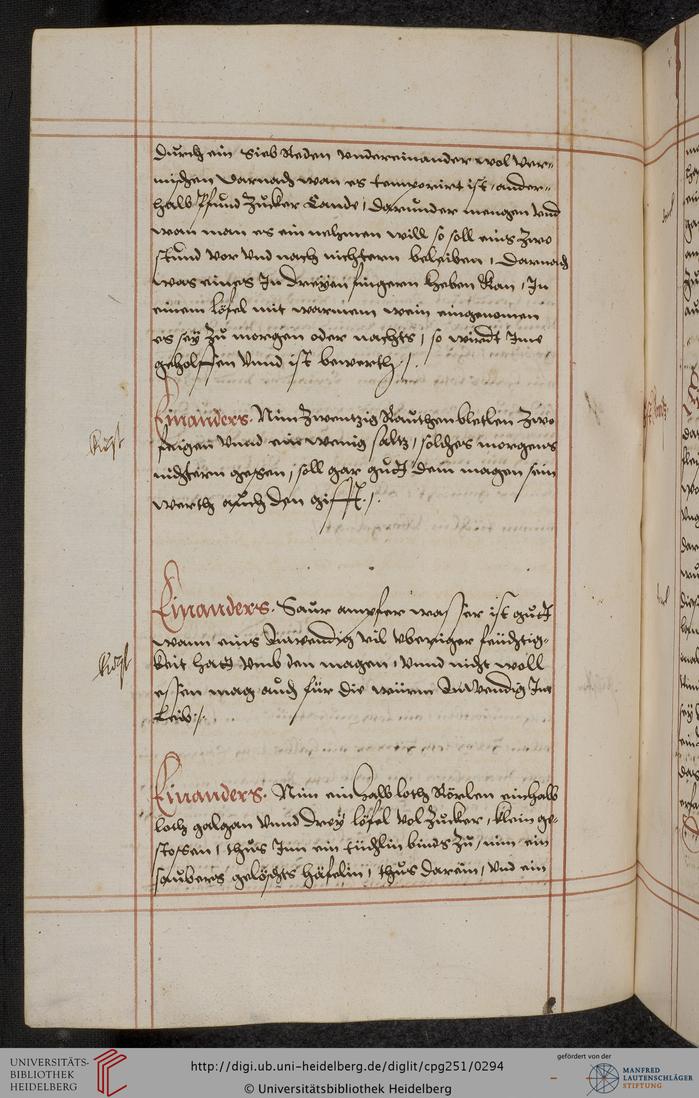 durch ein Sieb Reden vndereinander wol ver-
mischen Darnach wan es temporirt ist, ander-
halb Pfund Zucker Cande, darunder mengen vnd
wan man es ein nehmen will so soll eins zwo
stund vor vnd nach nichtern beleiben, Darnach
was eines In dreyen fingern heben kan, In
einem löfel mit warmem wein eingenomen
es sey zu morgen oder nachts, so wirdt Ime
geholffen vnnd ist bewerth.
Einanders. Nim zwentzig Rauthenbletlen zwo
feigen vnnd ein wenig saltz, solches morgens
nichtern gessen, soll gar gudt dem magen sein
werth auch den gifft.
Einanders. Saur ampfer wasser ist gudt
wann eins Inwendig vil vberiger feüchtig-
keit hatt vmb den magen, vnnd nicht woll
essen mag auch für die würm Inwendig Im
Leib.
Einanders. Nim ein halb loth Rörlen einhalb
loth galgan vnnd drey löfel vol Zucker, klein ge-
stossen, thus Inn ein tüchlin binds zu, nim ein
saubers gelöschts häfelin, thus darein, vnd ein
UNIVERSITÄTS-
BIBLIOTHEK
HEIDELBERG
http://digi.ub.uni-heidelberg.de/diglit/cpg251/0294
© Universitätsbibliothek Heidelberg
gefördert von der
MANFRED
LAUTENSCHLÄGER
STIFTUNG